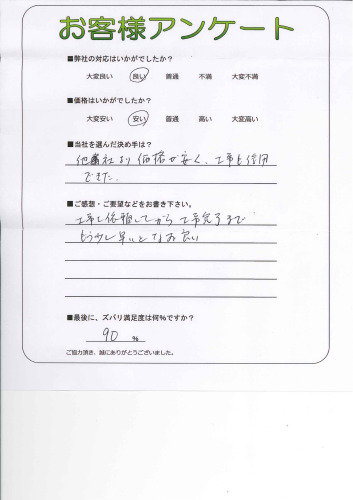 お客様アンケート
■弊社の対応はいかがでしたか？
大変良い 良い 普通 不満 大変不満
■価格はいかがでしたか？
大変安い 安い 普通 高い 大変高い
■当社を選んだ決め手は？
他社より価格が安く、工事も信用
できた。
■ご感想・ご要望などをお書き下さい。
工事を依頼してから工事完了まで
もう少し早いとなお良い
■最後に、ズバリ満足度は何%ですか？
90 %
ご協力頂き、誠にありがとうございました。